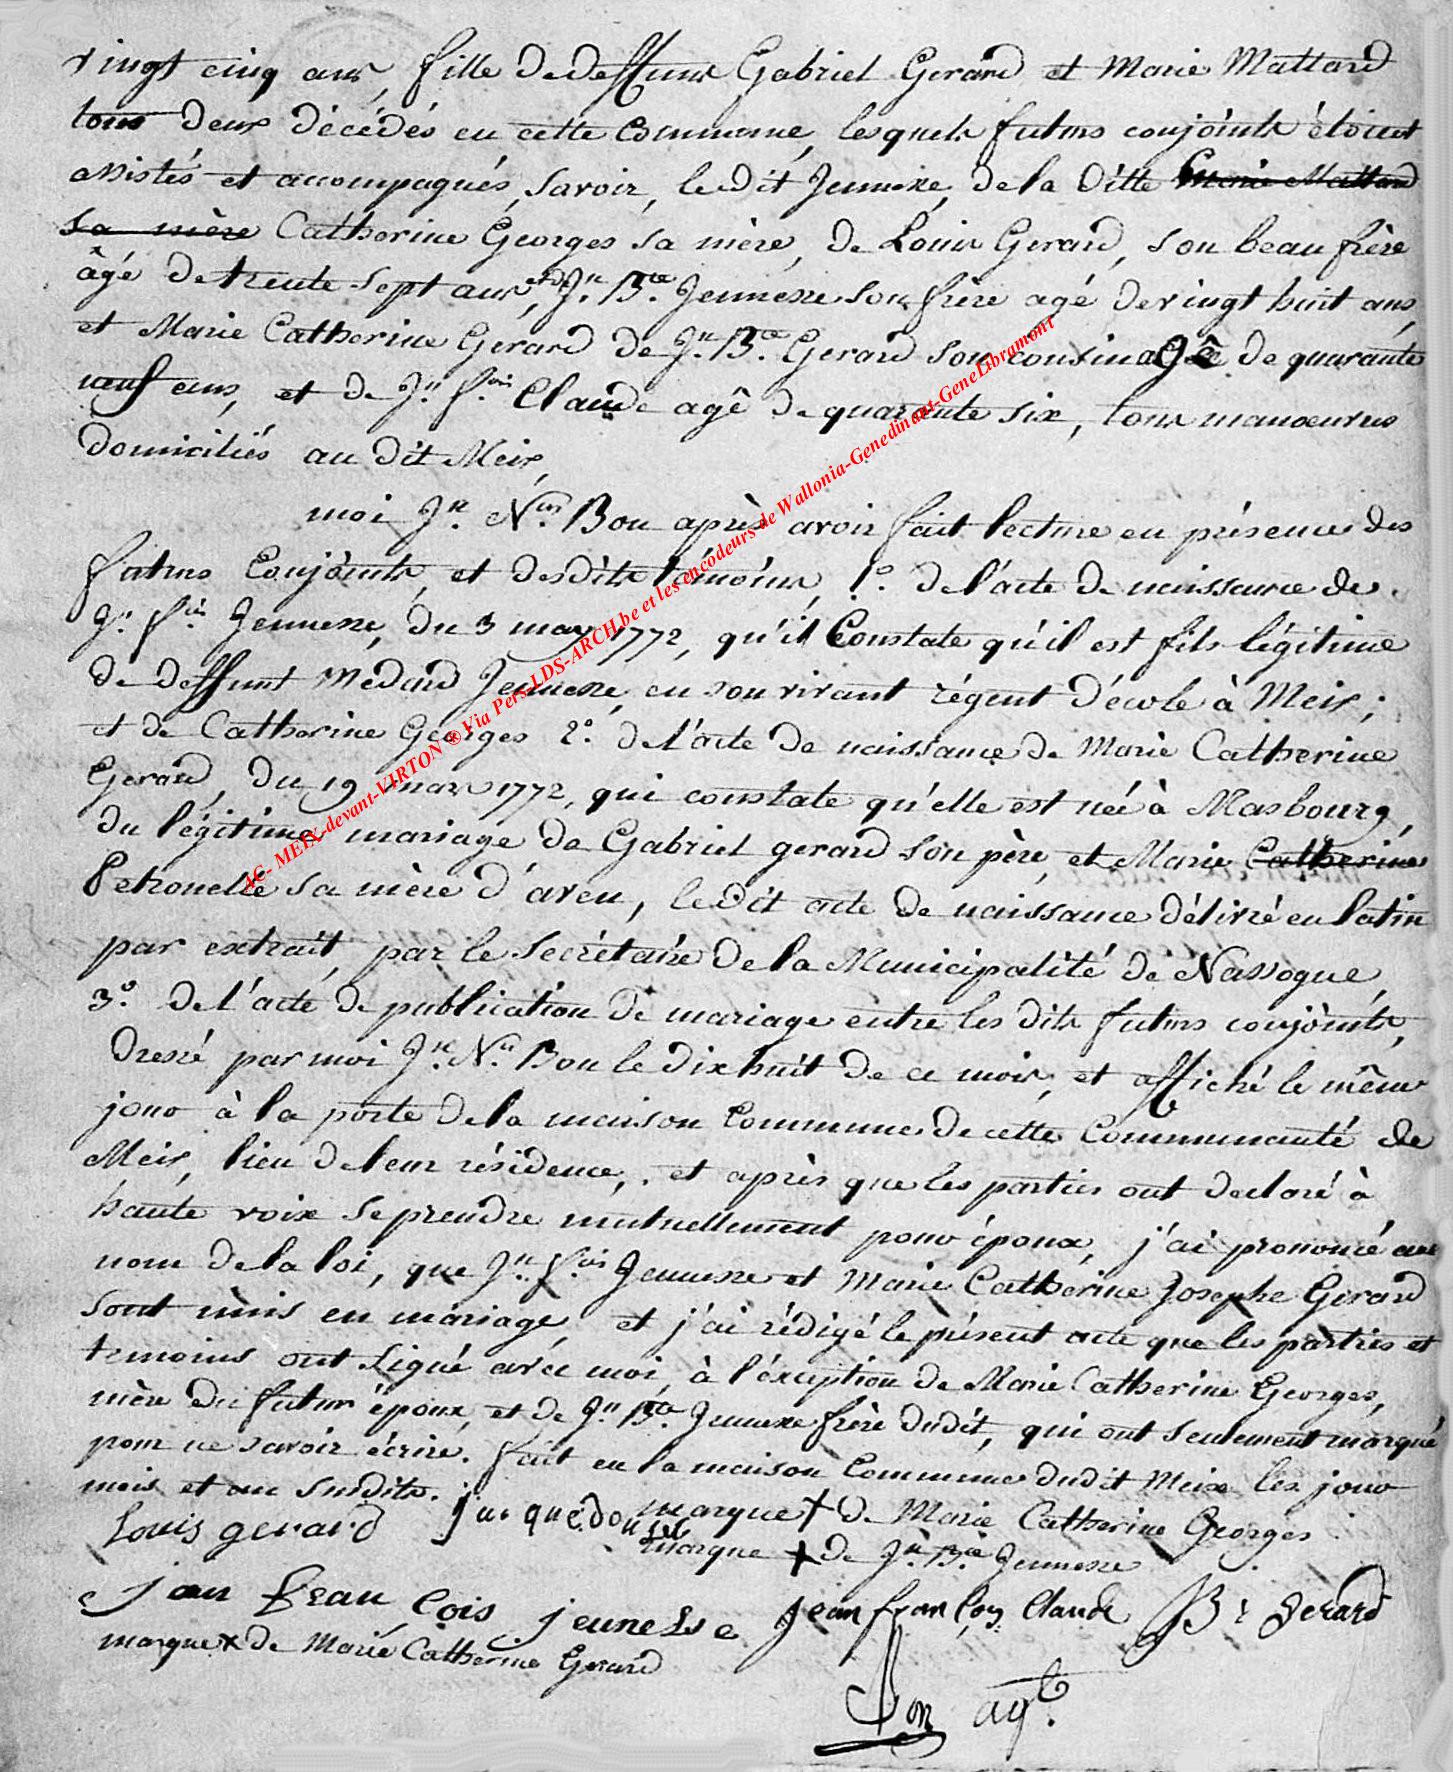 vingt cinq ans, fille de deffunts Gabriel Gerard et Marie Mattard
tous deux décédés en cette Commune, lesquels futurs conjoints étoient
assistés et accompagnés, savoir, le dit Jeunesse, de la ditte Marie Mattard
sa mère Catherine Georges sa mère, de Louis Gerard, son beau frère
âgé de trente sept ans, et de Jn. Bte. Jeunesse son frère agé de vingt huit ans,
et Marie Catherine Gerard de Jn. Bte. Gerard son cousin agée de quarante
neuf ans, et de Jn. fois Claude agê de quarante six, tous manoeuvres
domiciliés au dit Meix,
moi Jn. Nas Bon après avoir fait lecture en présence des
futurs Conjoints, et desdits témoins, 1.° de l'acte de naissance de
Jn. fois Jeunesse, du 3 may 1772, qu'il Constate qu'il est fils légitime
de deffunt Medard Jeunesse, en son vivant régent d'école à Meix;
et de Catherine Georges 2.° de l'acte de naissance de Marie Catherine
Gerard, du 19 mars 1772, qui constate qu'elle est née à Masbourg,
du légitime mariage de Gabriel gerard son père, et Marie Catherine
Petronelle sa mère d'aveu, le dit acte de naissance délivré en latin
par extrait, par le Secrétaire de la Municipalité de Nassogne,
3.° de l'acte de publication de mariage entre les dits futurs conjoints,
dressé par moi Jn. Nas Bon le dix huit de ce mois, et affiché le même
jour à la porte de la maison Commune de cette Communauté de
Meix, lieu de leur résidence, et après que les parties ont declaré à
haute voix se prendre mutuellement pour époux, j'ai prononcé au
nom de la loi, que Jn. fois Jeunesse et Marie Catherine Josephe Gerard
sont unis en mariage, et j'ai rédigé le présent acte que les parties et
temoins ont signé avec moi, à l'éxception de Marie Catherine Georges,
mère du futur époux, et de Jn. Bte. Jeunesse frère dudit, qui ont seulement marqué
pour ne savoir écrire. fait en la maison Commune dudit Meix les jour
mois et an susdits.
marque + de Marie Catherine Georges
Louis gerard
marque + de Jn. Bte. Jeunesse
jan fran çois jeunesse jean françois Claude B t gerard
marque x de Marie Catherine Gerard
Bon agt.
AC- MEIX-devant-VIRTON ® Via Pers-LDS-ARCH.be et les encodeurs de Wallonia-Genedinant-GeneLibramont